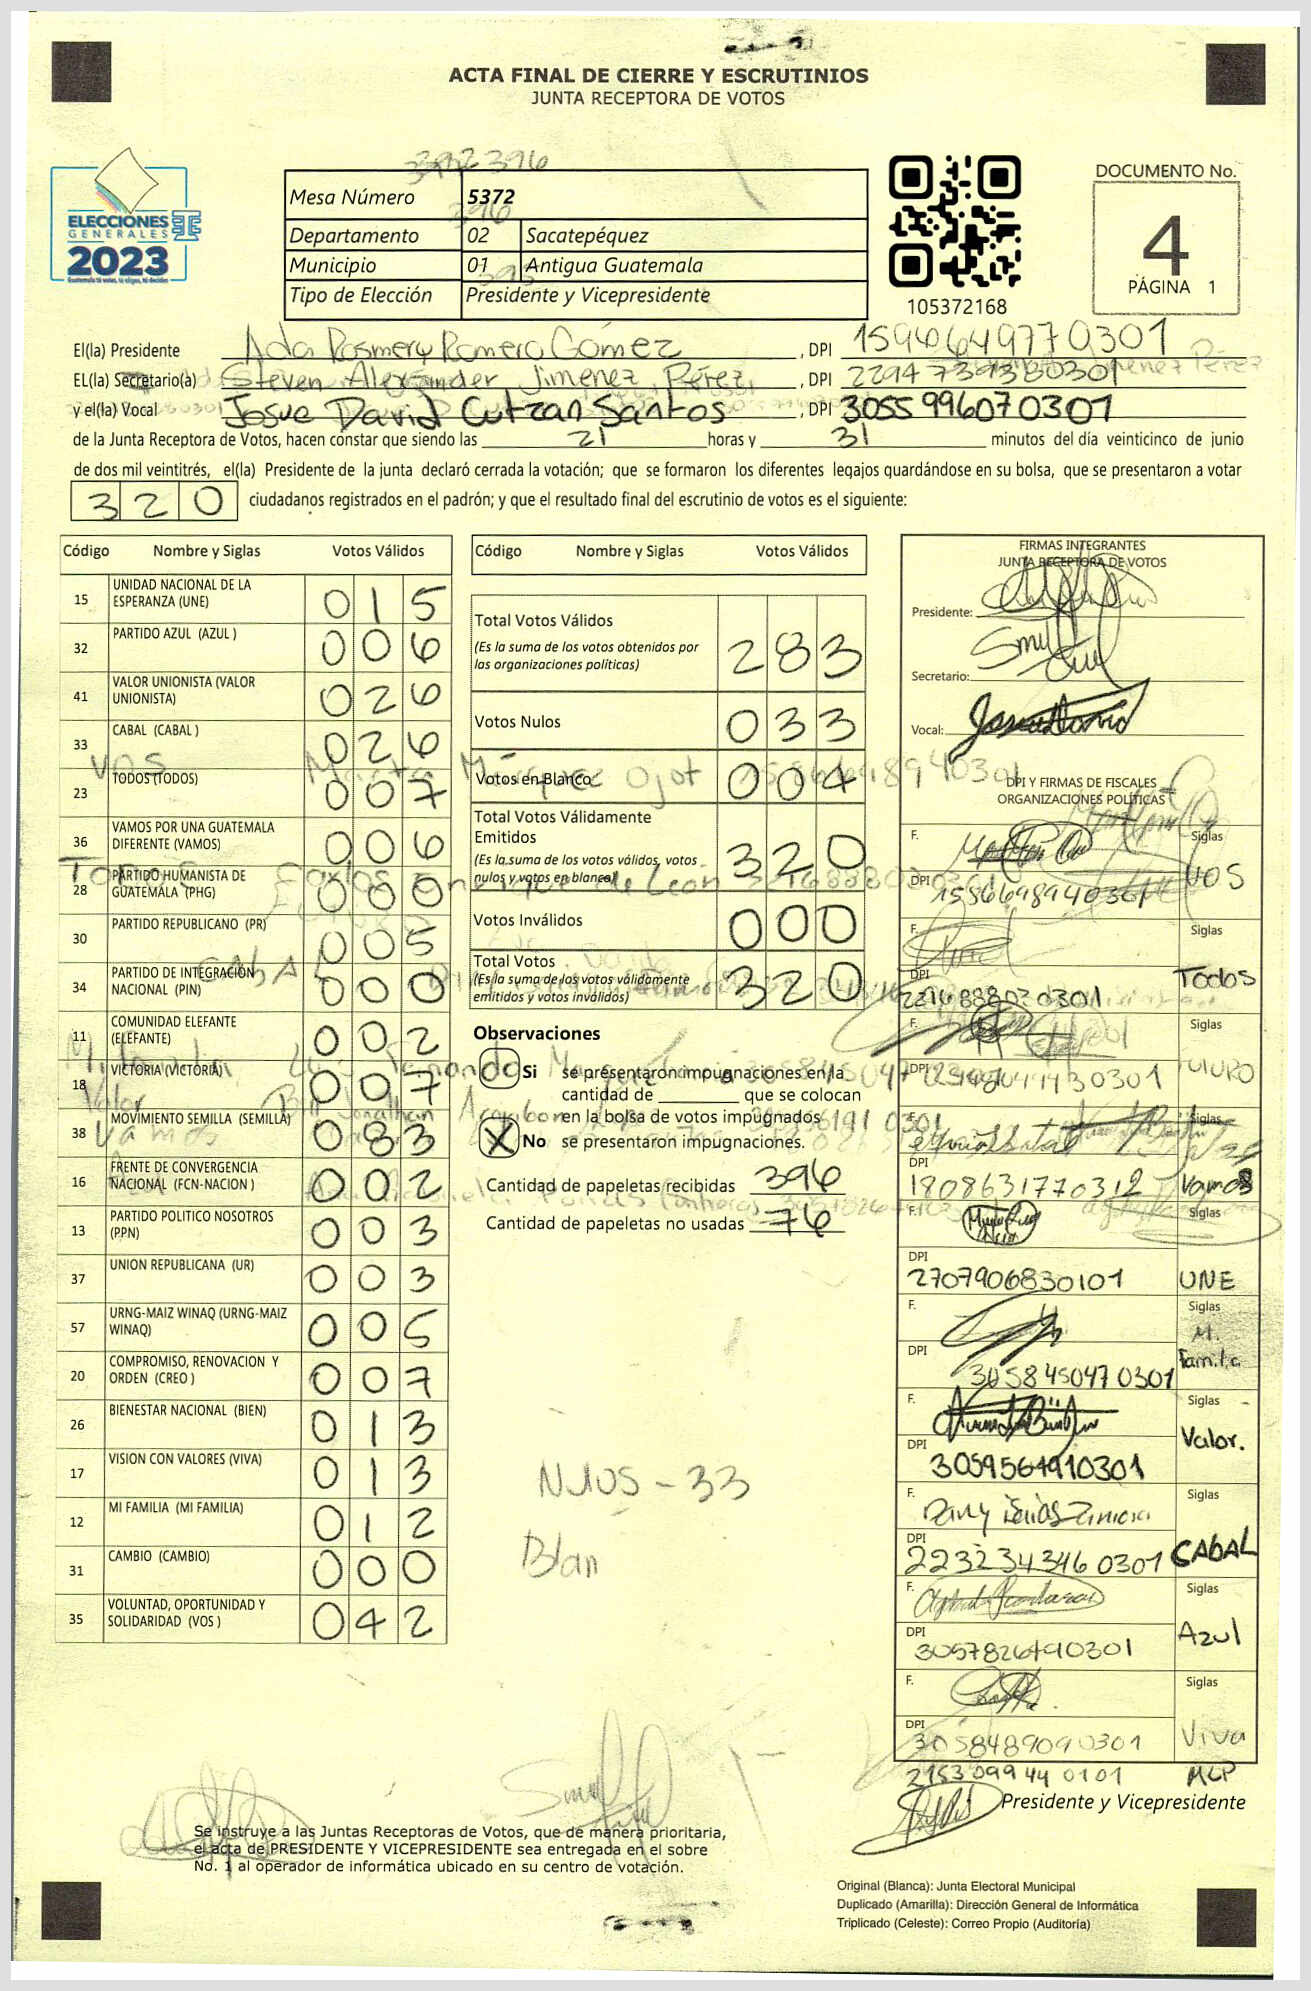 ACTA FINAL DE CIERRE Y ESCRUTINIOS
JUNTA RECEPTORA DE VOTOS
396
ELECCIONES
GENERALES
2023
Mesa Número 5372
Departamento 02 Sacatepéquez
Municipio 01 Antigua Guatemala
Tipo de Elección Presidente y Vicepresidente
105372168
DOCUMENTO No.
4
PÁGINA 1
El(la) Presidente Ada Rosmery Romero Gómez, DPI 1594649770301
EL(la) Secretario(a) Steven Alexander Jimenez Pérez, DPI 2294739380301
y el(la) Vocal Josue David Cutzan Santos, DPI 3055996070301
de la Junta Receptora de Votos, hacen constar que siendo las 21 horas y 31 minutos del día veinticinco de junio
de dos mil veintitrés, el(la) Presidente de la junta declaró cerrada la votación; que se formaron los diferentes legajos quardándose en su bolsa, que se presentaron a votar
320 ciudadanos registrados en el padrón; y que el resultado final del escrutinio de votos es el siguiente:
Código Nombre y Siglas Votos Válidos
15 UNIDAD NACIONAL DE LA ESPERANZA (UNE) 015
32 PARTIDO AZUL (AZUL ) 006
41 VALOR UNIONISTA (VALOR UNIONISTA) 026
33 CABAL (CABAL ) 026
23 TODOS (TODOS) 007
36 VAMOS POR UNA GUATEMALA DIFERENTE (VAMOS) 006
28 PARTIDO HUMANISTA DE GUATEMALA (PHG) 000
30 PARTIDO REPUBLICANO (PR) 005
34 PARTIDO DE INTEGRACIÓN NACIONAL (PIN) 000
11 COMUNIDAD ELEFANTE (ELEFANTE) 002
18 VICTORIA (VICTORIA) 007
38 MOVIMIENTO SEMILLA (SEMILLA) 083
16 FRENTE DE CONVERGENCIA NACIONAL (FCN-NACION ) 002
13 PARTIDO POLITICO NOSOTROS (PPN) 003
37 UNION REPUBLICANA (UR) 003
57 URNG-MAIZ WINAQ (URNG-MAIZ WINAQ) 005
20 COMPROMISO, RENOVACION Y ORDEN (CREO ) 007
26 BIENESTAR NACIONAL (BIEN) 013
17 VISION CON VALORES (VIVA) 013
12 MI FAMILIA (MI FAMILIA) 012
31 CAMBIO (CAMBIO) 000
35 VOLUNTAD, OPORTUNIDAD Y SOLIDARIDAD (VOS ) 042
Código Nombre y Siglas Votos Válidos
Total Votos Válidos 283
(Es la suma de los votos obtenidos por
las organizaciones políticas)
Votos Nulos 033
Votos en Blanco 004
Total Votos Válidamente
Emitidos 320
(Es la suma de los votos válidos, votos
nulos y votos en blanco)
Votos Inválidos 000
Total Votos 320
(Es la suma de los votos válidamente
emitidos y votos inválidos)
Observaciones
Si se presentaron impugnaciones en la
cantidad de ________ que se colocan
en la bolsa de votos impugnados
X No se presentaron impugnaciones.
Cantidad de papeletas recibidas 396
Cantidad de papeletas no usadas 76
Nulos - 33
Blan
FIRMAS INTEGRANTES
JUNTA RECEPTORA DE VOTOS
Presidente:
Secretario:
Vocal:
DPI Y FIRMAS DE FISCALES
ORGANIZACIONES POLÍTICAS
F. Siglas
DPI 1586698940301 VOS
F. Siglas
DPI 2216888020301 Todos
F. Siglas
DPI FUTURO
F. Siglas
DPI 1808631770312 Vamos
F. Siglas
DPI 2707906830101 UNE
F. Siglas
DPI 3058450470301 M. Familia
F. Siglas
DPI 3059564910301 Valor.
F. Siglas
DPI 2232343460301 CABAL
F. Siglas
DPI 3057826490301 Azul
F. Siglas
DPI 3058489090301 Viva
2153099440101 MLP
Presidente y Vicepresidente
Se instruye a las Juntas Receptoras de Votos, que de manera prioritaria,
el acta de PRESIDENTE Y VICEPRESIDENTE sea entregada en el sobre
No. 1 al operador de informática ubicado en su centro de votación.
Original (Blanca): Junta Electoral Municipal
Duplicado (Amarilla): Dirección General de Informática
Triplicado (Celeste): Correo Propio (Auditoría)